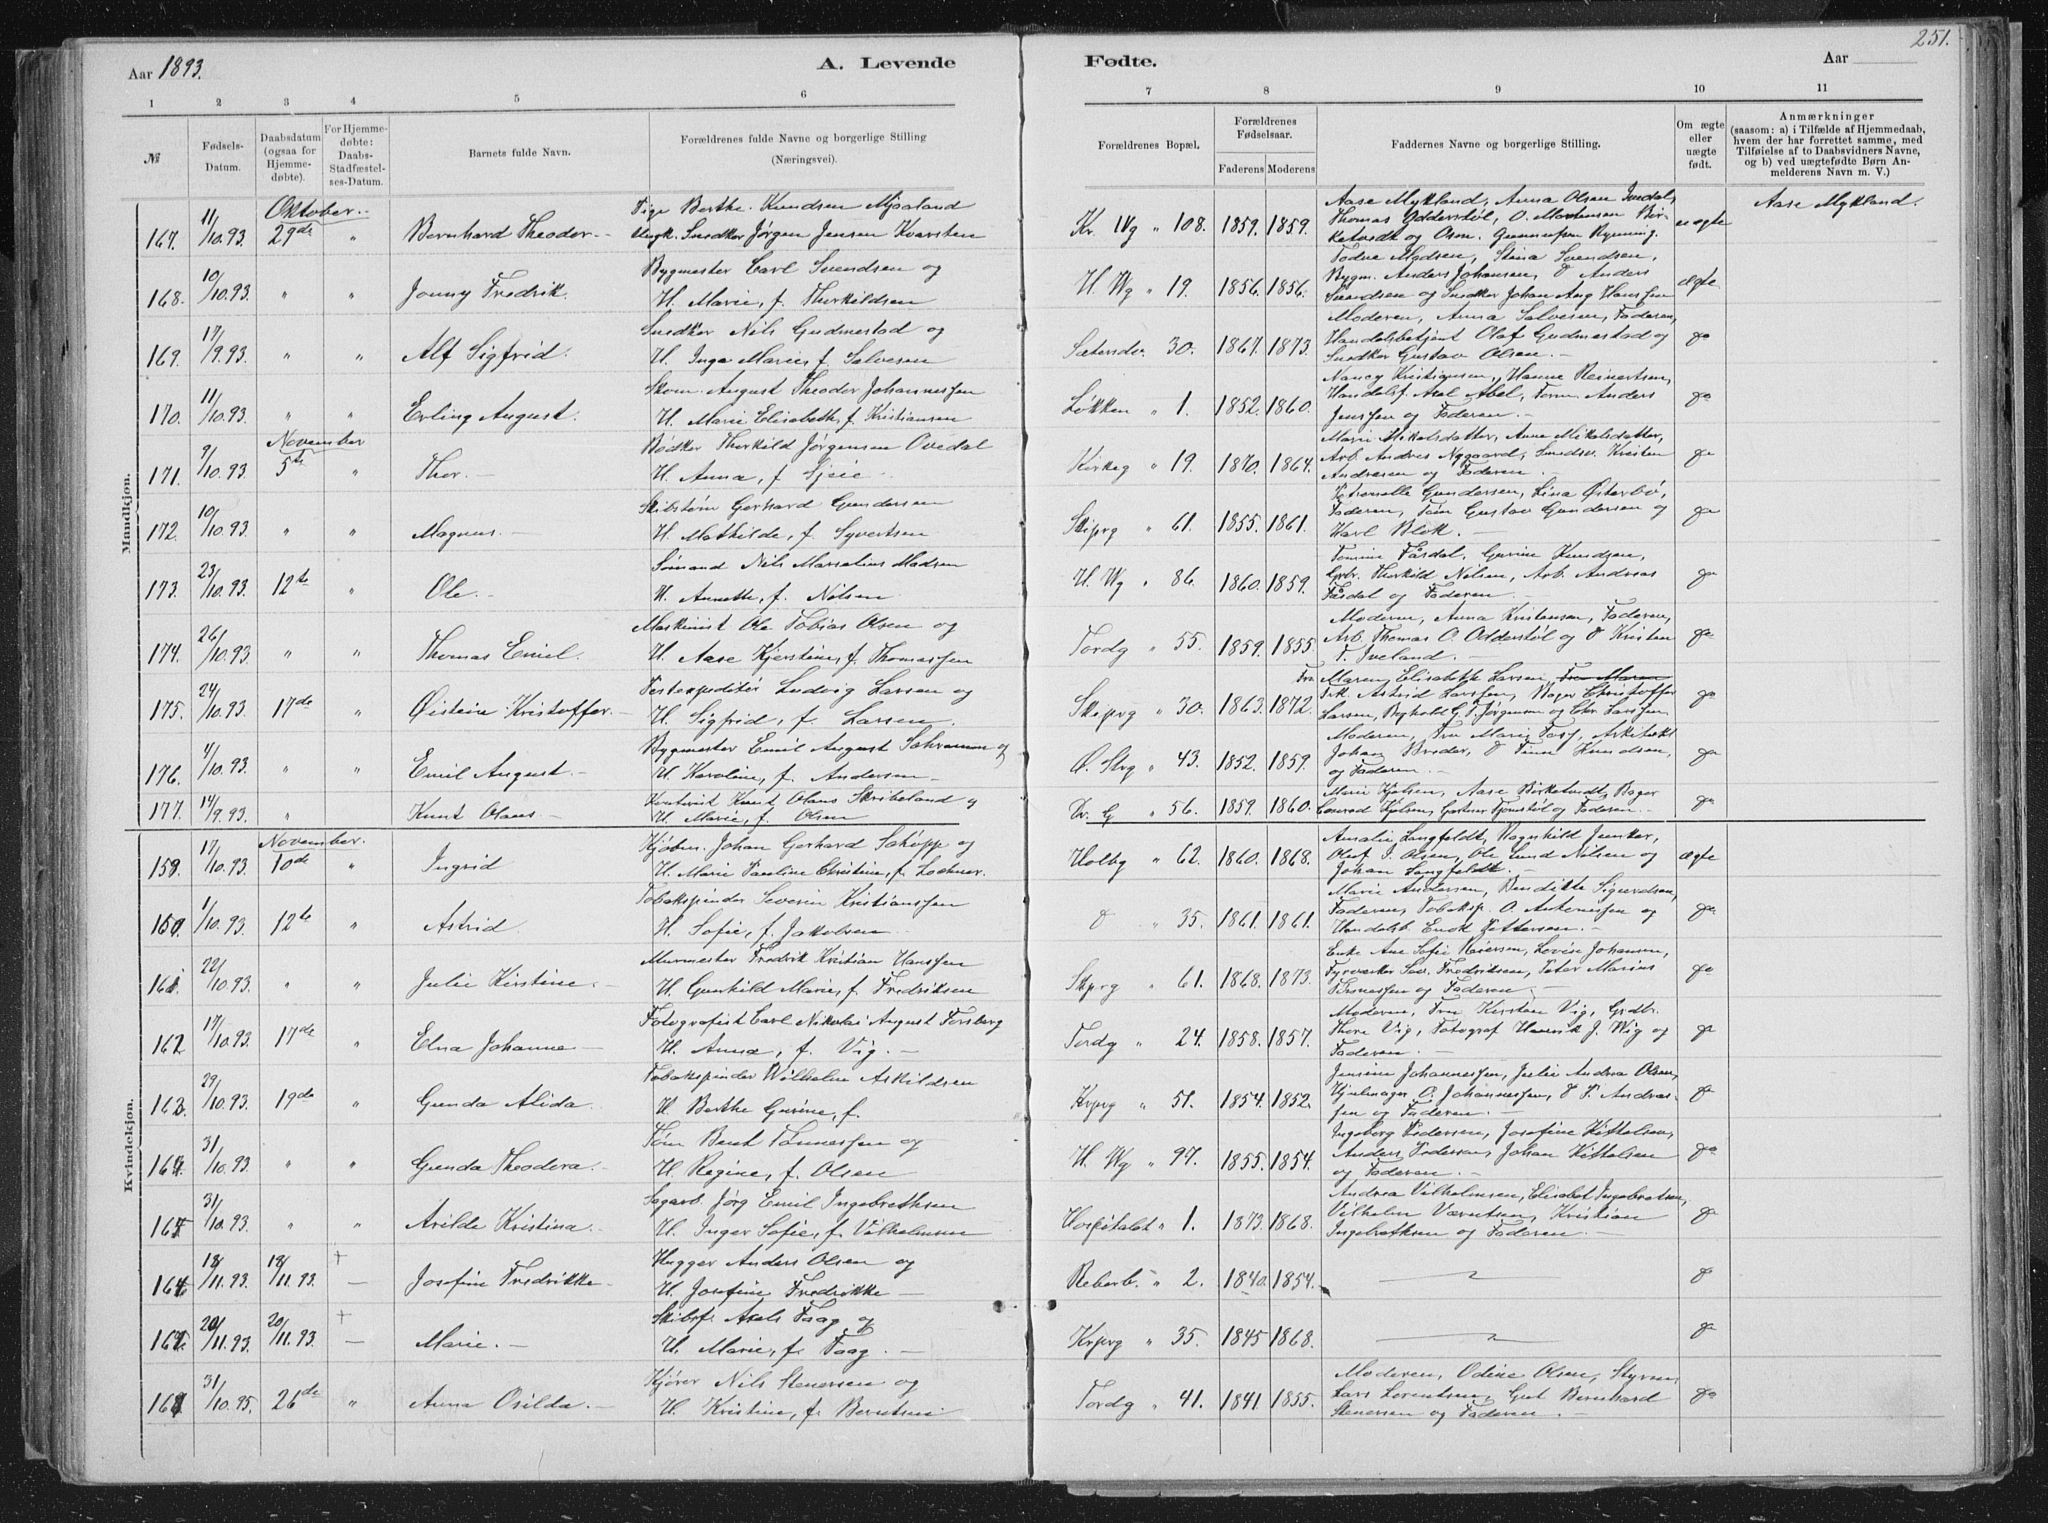 251.
Aar 1893.
A. Levende
Fødte.
Aar
1 2 3 4 5 6 7 8 9 10 11
№
Fødsels-Datum.
Daabsdatum (ogsaa for Hjemme-døbte).
For Hjemme-døbte: Daabs-Stadfæstel-ses-Datum.
Barnets fulde Navn.
Forældrenes fulde Navne og borgerlige Stilling (Næringsvei).
Forældrenes Bopæl.
Forældrenes Fødselsaar.
Faderens Moderens
Faddernes Navne og borgerlige Stilling.
Om ægte eller uægte født.
Anmærkninger
(saasom: a) i Tilfælde af Hjemmedaab, hvem der har forrettet samme, med Tilføielse af to Daabsvidners Navne, og b) ved uægtefødte Børn An-melderens Navn m. V.)
Mandkjøn.
Oktober
167. 11/10.93. 29de " Bernhard Theodor. Pige Berthe Knudsen Mjaaland
Ungk. Snedker Jørgen Jensen Kvarsten
Kr. Vg " 108. 1859. 1859.
Aase Mykland, Anna Olsen
Thomas Odderstøl, O. Mortensen Bir-
ketvedt og uægte
Aase Mykland.
168. 10/10.93. " " Jonny Fredrik. Bygmester Carl Svendsen og
H. Marie, f. Therkildsen
H. Wg " 19. 1856. 1856.
Stina Svendsen,
Bygm. Anders Johansen, Anders
Svendsen og Snedker Johan Aug Hanssen ægte
169. 17/9.93. " " Alf Sigfrid. Snedker Nils Gudmestad og
H. Inga Marie, f. Salvesen
Sætersdv. 30. 1867. 1873.
Moderen, Anna Salvesen, Faderen,
Handelsbetjent Olaf Gudmestad og
Snedker Gustav Olsen.
170. 11/10.93. " " Erling August. Skom. August Theodor Johannessen
H. Marie Elisabeth, f. Kristiansen
Løkken " 1. 1852. 1860.
Nancy Kristiansen, Hanne Reinertsen,
Handelsf. Axel Abel, Anders
Jenssen og Faderen.
November
171. 9/10.93. 5te " Thor. Bødker Therkild Jørgensen Ovedal
H. Anna, f.
Kirkeg " 19. 1870. 1864.
Marie Mikalsdatter, Anne Mikalsdatter,
Arb. Andres Nygaard, Kristen
Andresen og Faderen.
172. 10/10.93. " " Magnus. Skibstøm Gerhard Gundersen
H. Mathilde, f. Syvertsen
Skiprg " 61. 1855. 1861.
Petronelle Gundersen, Lina Østerbø,
Faderen, Tøm Gustav Gundersen og
Karl Blok.
173. 23/10.93. 12te " Ole. Sømand Nils Marselius Madsen
H. Annette, f. Nilsen
H. Wg " 86. 1860. 1859.
Tomine Fårdal, Gurine Knudsen,
Therkild Nilsen, Arb. Andreas
Fårdal og Faderen.
174. 26/10.93. " " Thomas Emil. Maskinist Ole Tobias Olsen og
H. Aase Kjerstine, f. Thomassen
Tordg " 55. 1859. 1855.
Moderen, Anna Kristensen, Faderen,
Arb. Thomas O. Odderstøl og Kristen
T. Iveland.
175. 24/10.93. 17de " Øistein Kristoffer. Ludvig Larsen og
H. Sigfrid, f. Larsen
Skiprg " 30. 1863. 1872.
Fru Maren Elisabeth Larsen, Fru Maren
Frk. Astrid Larssen, Bager Christoffer
Larsen, Boghold. G. P. Jørgensen og Chr. Larssen
176. 4/10.93. " " Emil August. Bygmester Emil August Schramm og
H. Karoline, f. Andersen
Ø. Stvg " 43. 1852. 1859.
Moderen, Fru Marie Foss, Arkitekt
Johan Knudsen,
og Faderen.
177. 14/9.93. " Knut Olaus Knut Olaus Skribeland og
H. Marie, f. Olsen
Kr. G " 56. 1859. 1860.
Marie Kjelsen, Aase Birketvedt, Bager
Conrad Kjelsen, Gartner og Faderen.
Kvindekjøn.
November.
159. 17/10.93. 10de " Ingrid Kjøbm. Johan Gerhard Schöpp og
H. Marie Pauline Christine, f. Lochner.
Holbg " 62. 1860. 1868.
Amalie Langfeldt, Ragnhild Junker,
Oluf J. Olsen, Ole Lund Nilsen og
Johan Langfeldt. ægte
160. 1/10.93. 12te " Astrid Tobakspinder Severin Kristianssen
H. Sofie, f. Jakobsen
" 35. 1861. 1861.
Marie Andersen, Benditte Sigurdsen,
Faderen, Tobaksp. O. Antonissen og
Handelsb. Enok Pettersen.
161. 22/10.93. " " Julie Kirstine. Murmester Fredrik Kristian Hanssen
H. Gunhild Marie, f. Fredriksen
Skprg " 61. 1868. 1873.
Enke Ane Sofie Reiersen, Lovise Johansen,
Fyrverker Sev. Fredriksen, Peter Marius
og Faderen.
162 17/10.93. 17de " Elna Johanne Fotografist Carl Nikolai August Forsberg
H. Anna, f. Vig.
Tordg " 24. 1858. 1857.
Moderen, Fru Kirsten Vig, Grdbr.
Thore Vig, Fotograf Henrik J. Wig og
Faderen.
163. 29/10.93. 19de " Gunda Alida. Tobakspinder Wilhelm Askildsen
H. Berthe Gurine, f.
Krprg " 51. 1854. 1852.
Jensine Johannessen, Julie Andrea Olsen,
Hjulmager O. Johannessen, P. Andreas-
sen og Faderen.
164. 31/10.93. " " Gunda Theodora. Tøm Bent Tønnessen og
H. Regine, f. Olsen
H. Wg " 97. 1855. 1854.
Ingeborg Pedersen, Josefine Kittelsen,
Anders Pedersen, Johan Kittelsen
og Faderen.
165. 31/10.93. " " Arilde Kristina. Sagarb. Jørg Emil Ingebrethsen
H. Inger Sofie, f. Vilhelmsen
Hospitalet " 1. 1873. 1868.
Andrea Vilhelmsen, Elisabet Ingebretsen,
Vilhelm Kristian
Ingebrethsen og Faderen.
166. 18/11.93. 18/11.93. + Josefine Fredrikke. Hugger Anders Olsen og
H. Josefine Fredrikke
Reberb. " 2. 1840. 1854.
167. 20/11.93. 20/11.93. + Marie. Skibsf. Axel Faag og
H. Marie, f. Faag.
Krprg " 35. 1845 1868.
168 31/10.95. 26de " Anna Osilda. Kjører Nils Stenersen og
H. Kristine, f. Berntsen
Tordg " 41. 1841 1855.
Moderen, Odine Olsen, Styrm.
Lars Lorentsen, Gut Bernhard
Stenersen og Faderen.